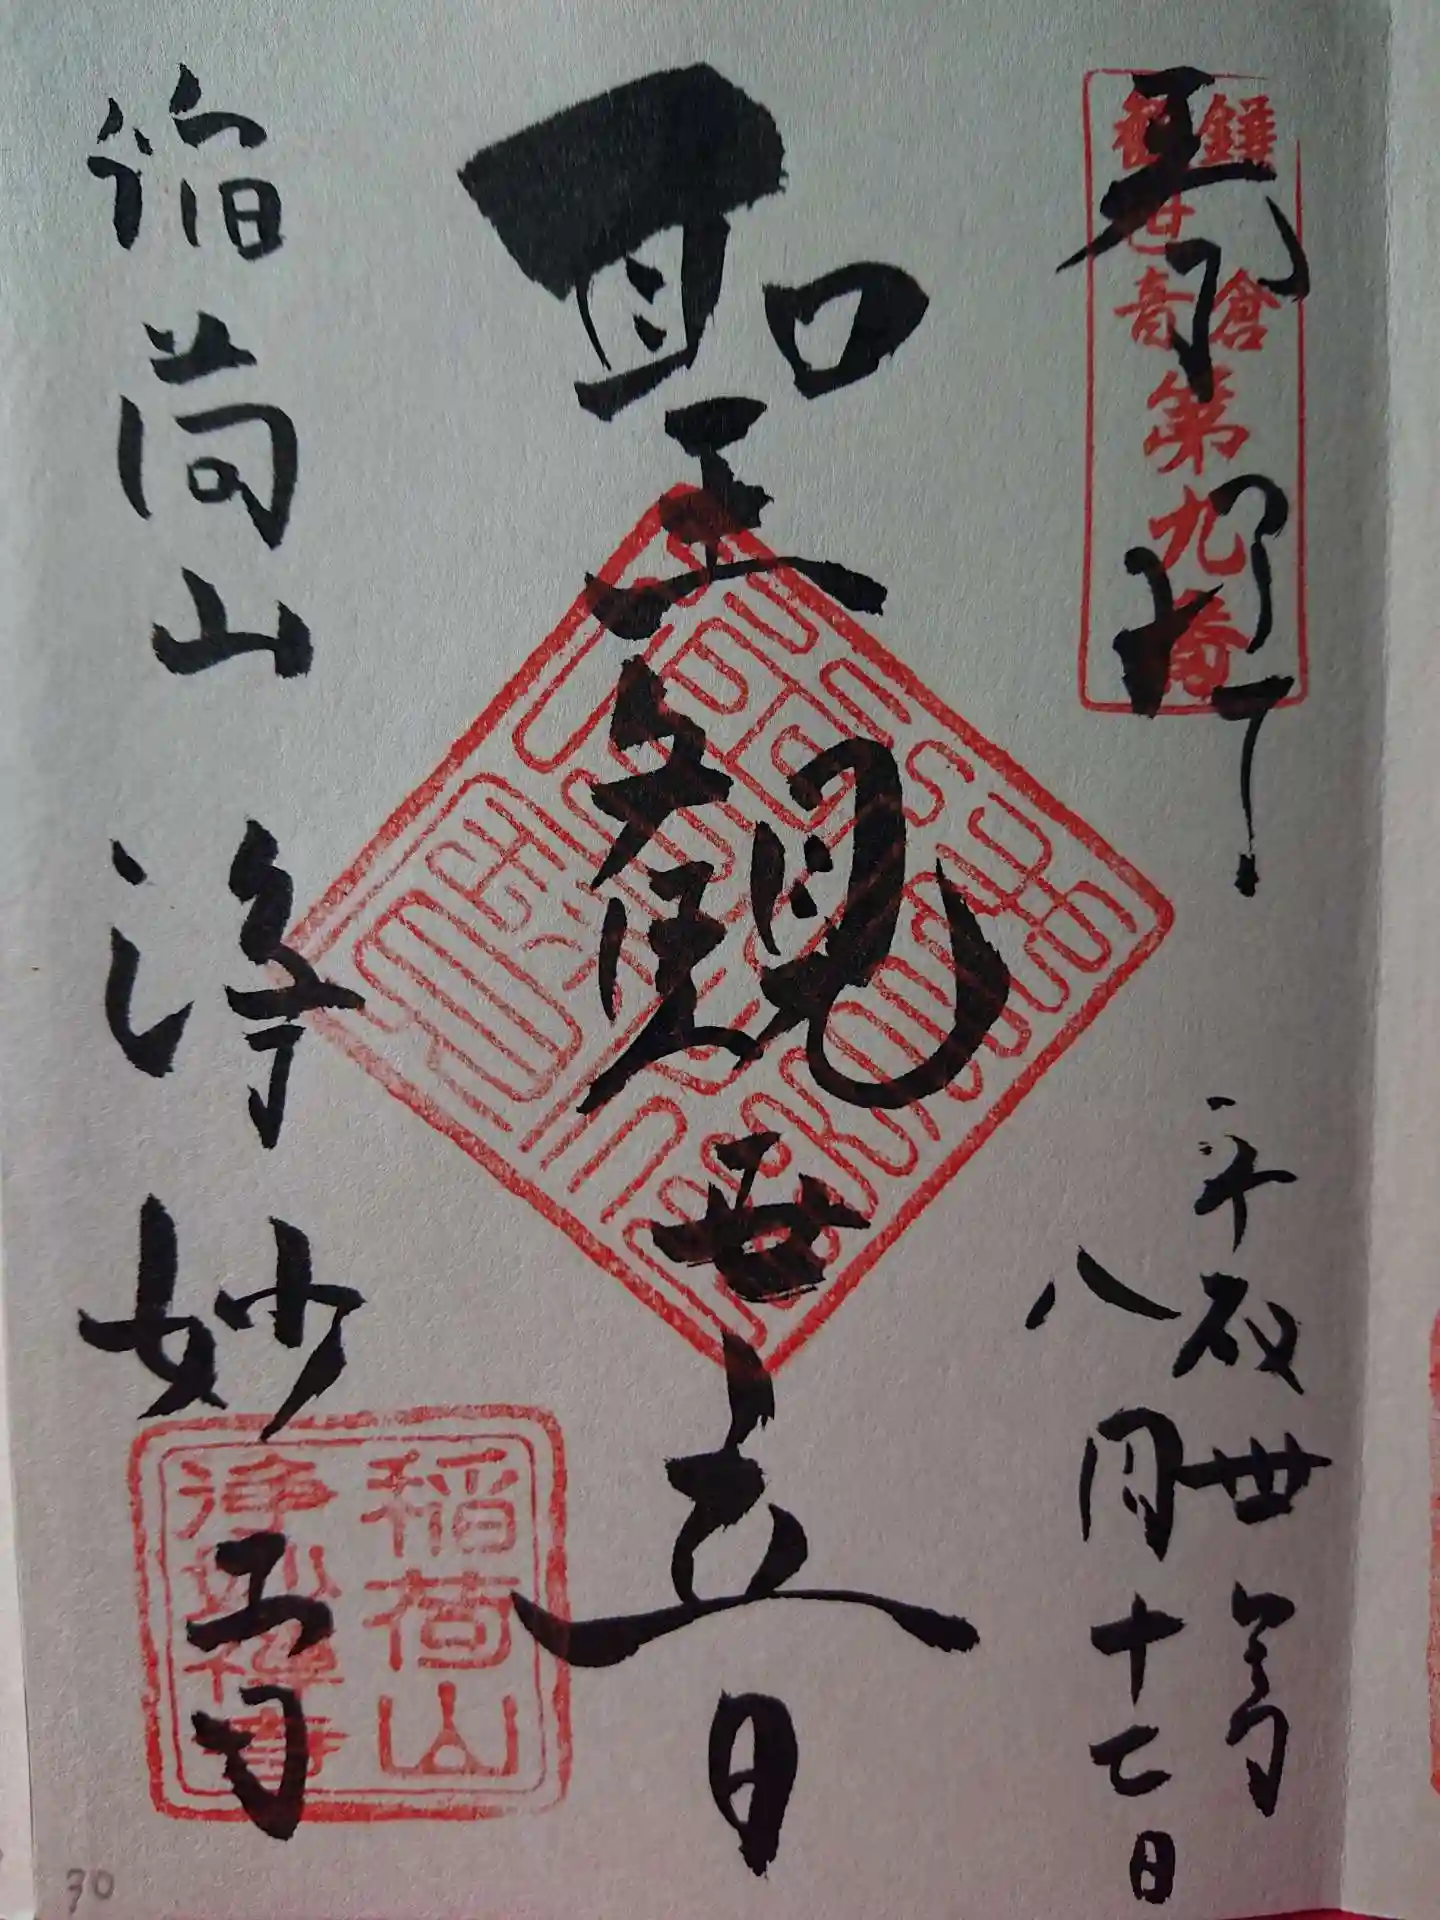 奉拝
鎌倉
観世音
第九番
平成卅年
八月十七日
聖観世音
稲荷山
浄妙寺
稲荷山
浄妙禅寺
30